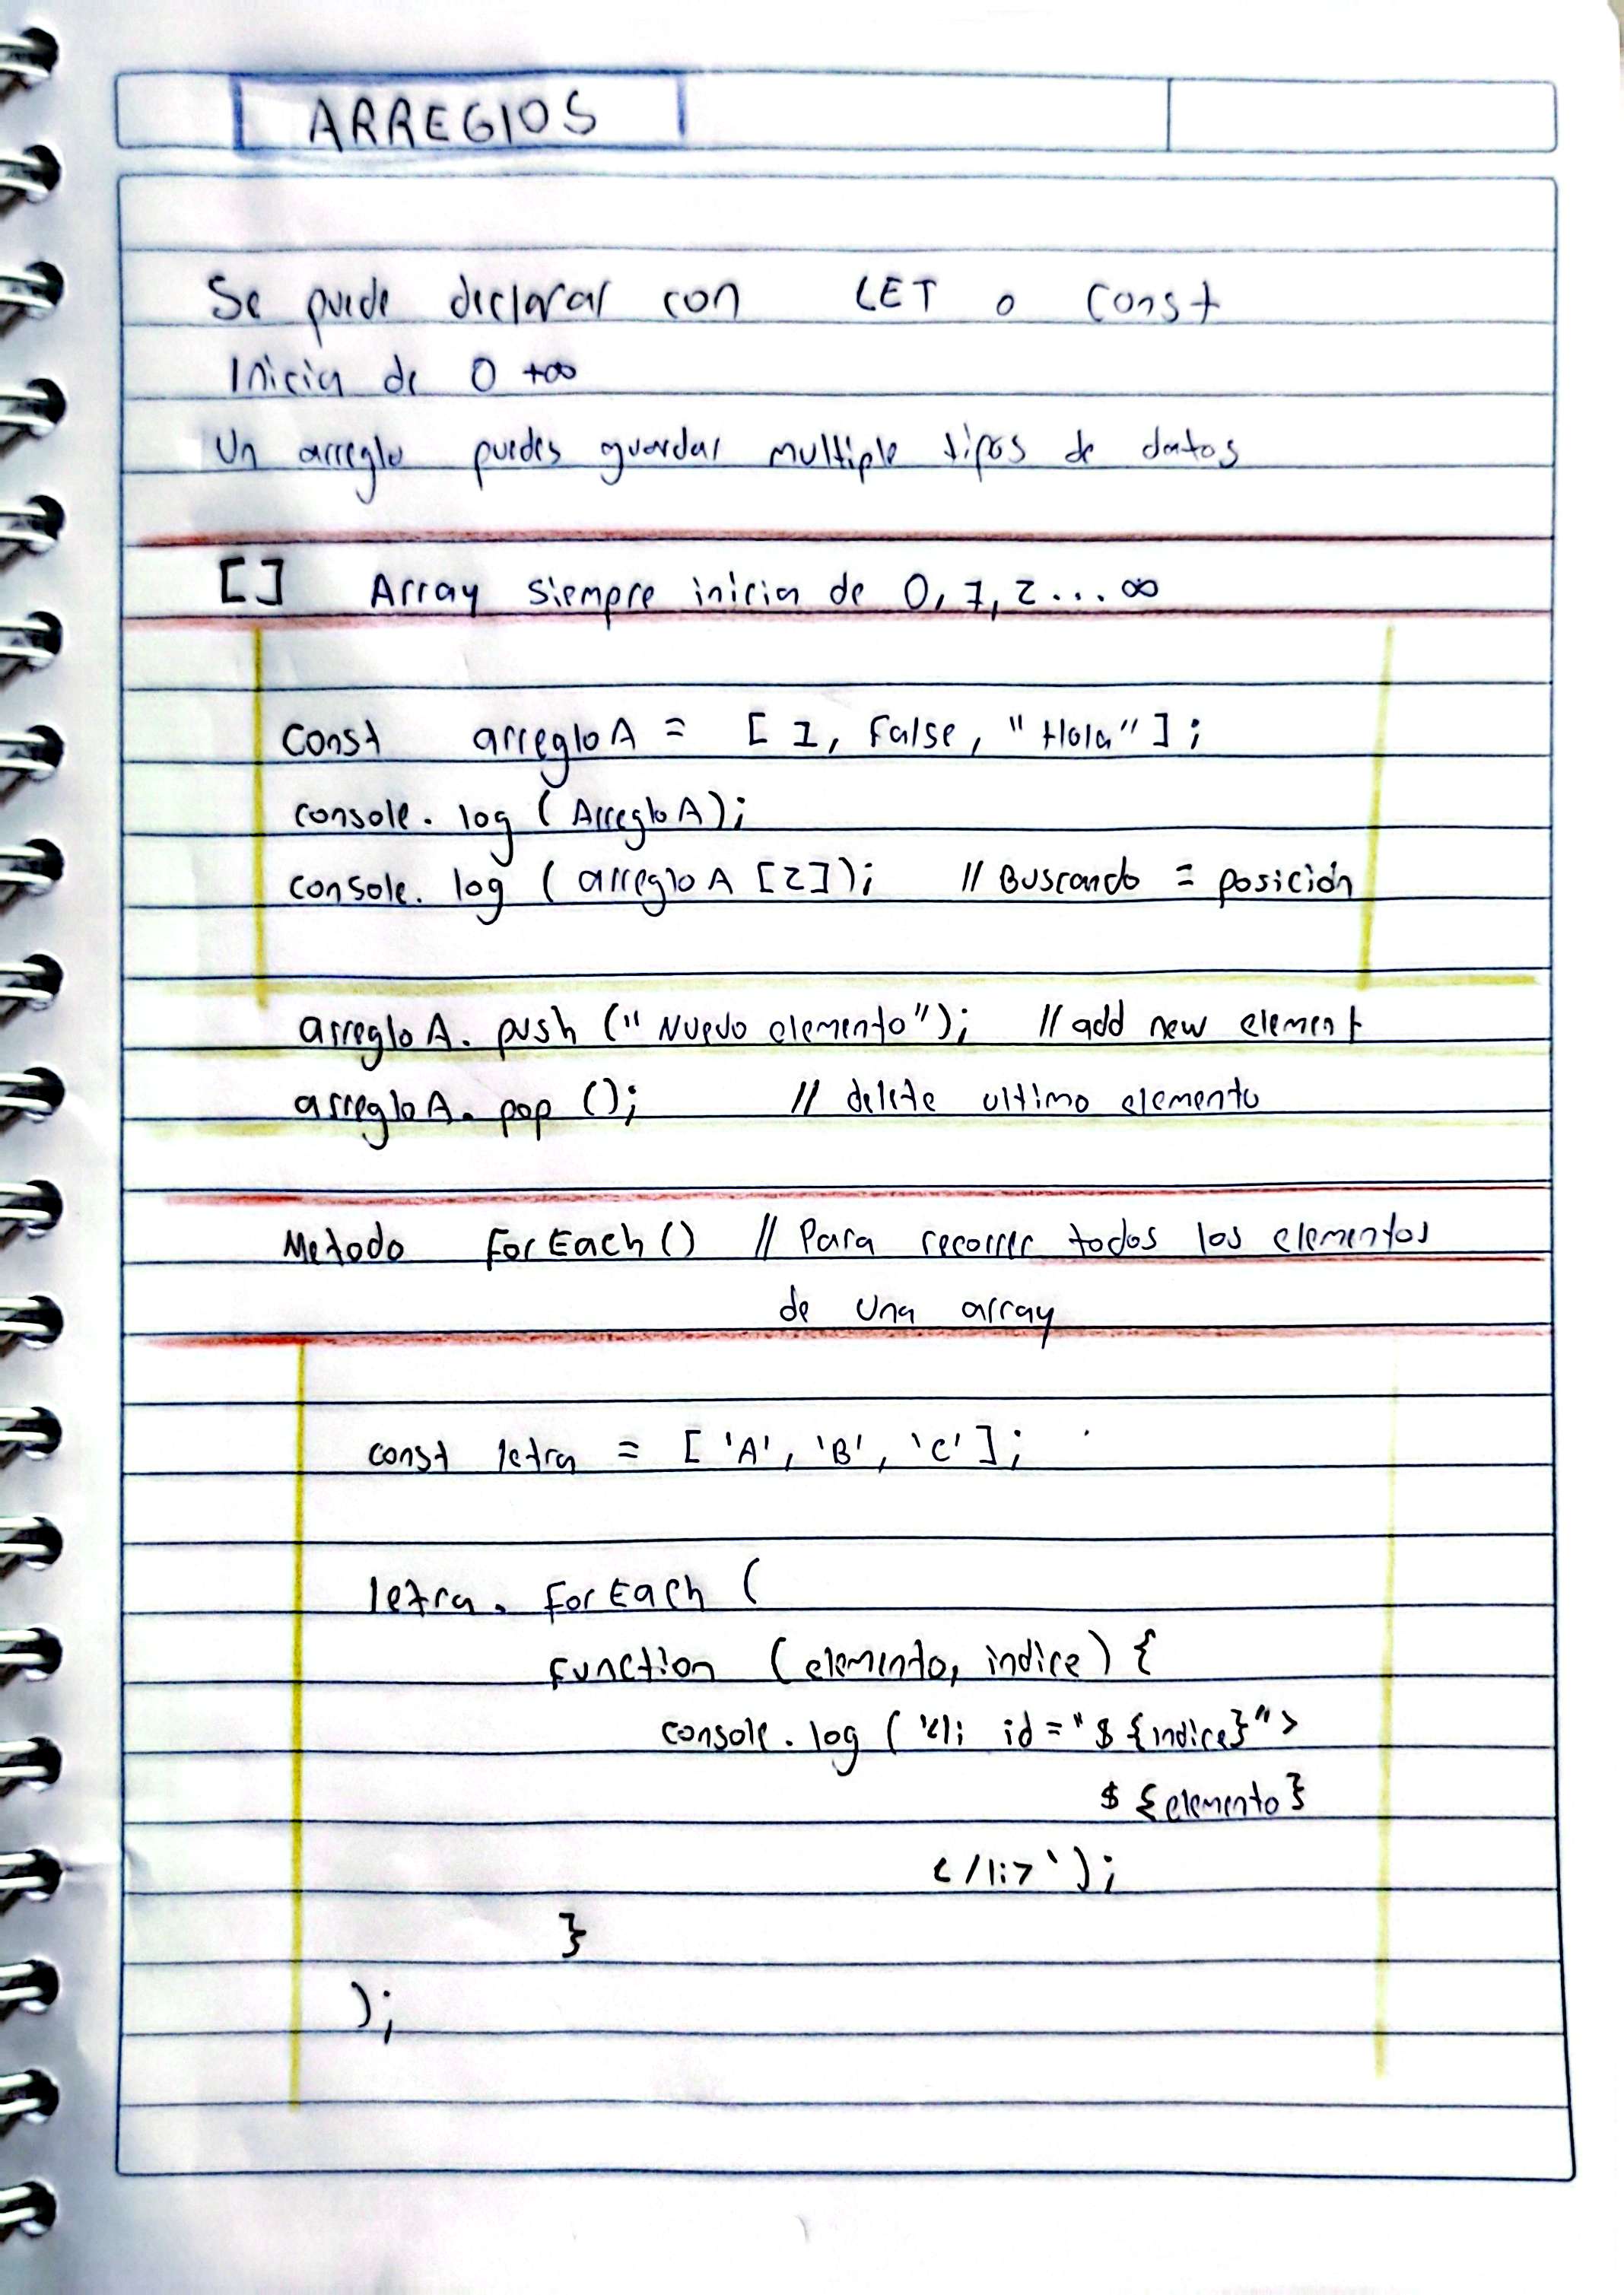 ARREGlOS
Se puede declarar con LET o Const
Inicia de 0 +∞
Un arreglo puedes guardar multiple tipos de datos
[] Array siempre inicia de 0, 1, 2 ... ∞
Const arregloA = [ 1, False, "Hola" ];
console. log ( ArregloA );
console. log ( arregloA [2]); // Buscando = posición
arregloA. push ("Nuevo elemento"); // add new element
arregloA. pop (); // delete ultimo elemento
Metodo ForEach () // Para recorrer todos los elementos
de una array
const letra = [ 'A', 'B', 'C' ];
letra. ForEach (
Function (elemento, indice) {
console. log ( `<li id="${indice}">
${elemento}
</li>`);
}
);